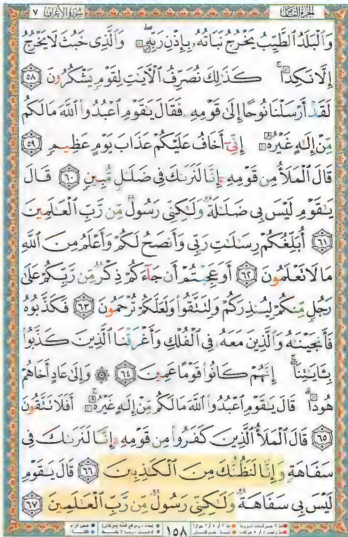 الجزء الثامن سورة الأعراف ٧
وَٱلْبَلَدُ ٱلطَّيِّبُ يَخْرُجُ نَبَاتُهُۥ بِإِذْنِ رَبِّهِۦ ۖ وَٱلَّذِى خَبُثَ لَا يَخْرُجُ
إِلَّا نَكِدًا ۚ كَذَٰلِكَ نُصَرِّفُ ٱلْءَايَٰتِ لِقَوْمٍ يَشْكُرُونَ ٥٨
لَقَدْ أَرْسَلْنَا نُوحًا إِلَىٰ قَوْمِهِۦ فَقَالَ يَٰقَوْمِ ٱعْبُدُوا۟ ٱللَّهَ مَا لَكُم
مِّنْ إِلَٰهٍ غَيْرُهُۥٓ إِنِّىٓ أَخَافُ عَلَيْكُمْ عَذَابَ يَوْمٍ عَظِيمٍ ٥٩
قَالَ ٱلْمَلَأُ مِن قَوْمِهِۦٓ إِنَّا لَنَرَىٰكَ فِى ضَلَٰلٍ مُّبِينٍ ٦٠ قَالَ
يَٰقَوْمِ لَيْسَ بِى ضَلَٰلَةٌ وَلَٰكِنِّى رَسُولٌ مِّن رَّبِّ ٱلْعَٰلَمِينَ
٦١ أُبَلِّغُكُمْ رِسَٰلَٰتِ رَبِّى وَأَنصَحُ لَكُمْ وَأَعْلَمُ مِنَ ٱللَّهِ
مَا لَا تَعْلَمُونَ ٦٢ أَوَعَجِبْتُمْ أَن جَآءَكُمْ ذِكْرٌ مِّن رَّبِّكُمْ عَلَىٰ
رَجُلٍ مِّنكُمْ لِيُنذِرَكُمْ وَلِتَتَّقُوا۟ وَلَعَلَّكُمْ تُرْحَمُونَ ٦٣ فَكَذَّبُوهُ
فَأَنجَيْنَٰهُ وَٱلَّذِينَ مَعَهُۥ فِى ٱلْفُلْكِ وَأَغْرَقْنَا ٱلَّذِينَ كَذَّبُوا۟
بِـَٔايَٰتِنَآ ۚ إِنَّهُمْ كَانُوا۟ قَوْمًا عَمِينَ ٦٤ ۞ وَإِلَىٰ عَادٍ أَخَاهُمْ
هُودًا ۗ قَالَ يَٰقَوْمِ ٱعْبُدُوا۟ ٱللَّهَ مَا لَكُم مِّنْ إِلَٰهٍ غَيْرُهُۥٓ ۚ أَفَلَا تَتَّقُونَ
٦٥ قَالَ ٱلْمَلَأُ ٱلَّذِينَ كَفَرُوا۟ مِن قَوْمِهِۦٓ إِنَّا لَنَرَىٰكَ فِى
سَفَاهَةٍ وَإِنَّا لَنَظُنُّكَ مِنَ ٱلْكَٰذِبِينَ ٦٦ قَالَ يَٰقَوْمِ
لَيْسَ بِى سَفَاهَةٌ وَلَٰكِنِّى رَسُولٌ مِّن رَّبِّ ٱلْعَٰلَمِينَ ٦٧
١٥٨